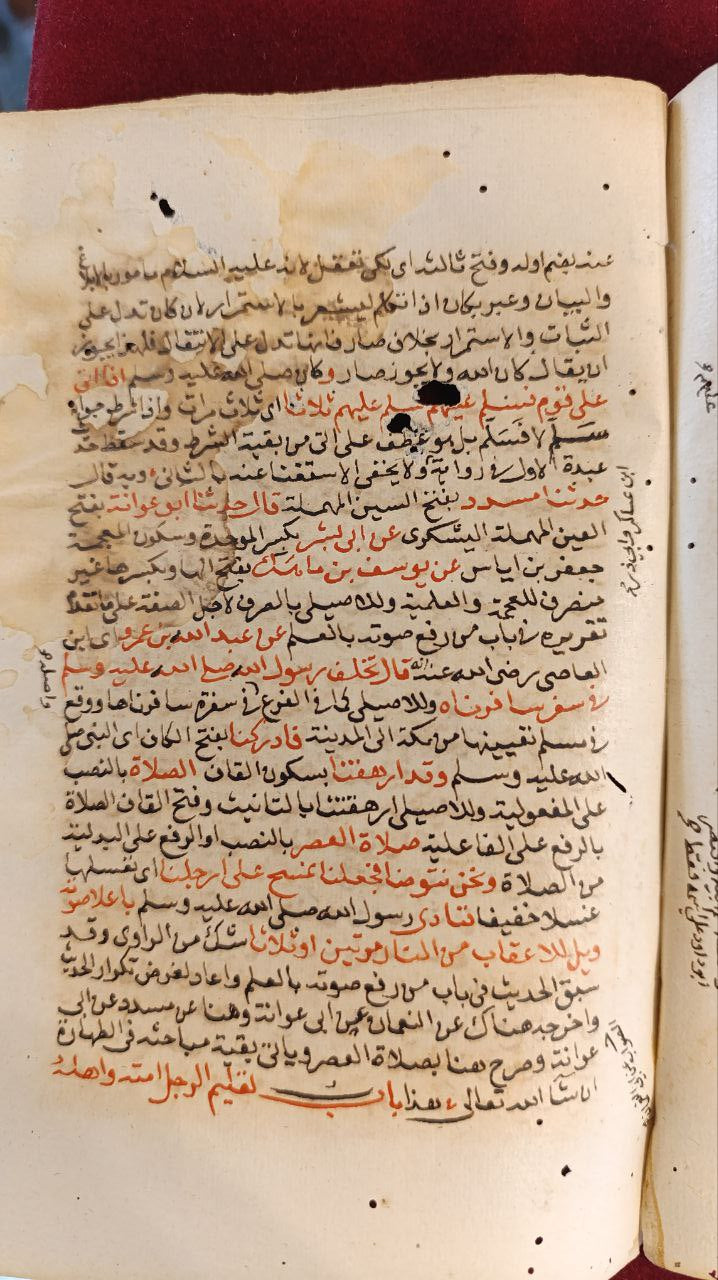 عنه بضم اوله وفتح ثالثه اى لكى تعقل لانه عليه السلام مامور بالابلاغ
والبيان وعبر بكان اذا تكلم ليشعر بالاستمرار لان كان تدل على
الثبات والاستمرار بخلاف صار فانها تدل على الانتقال فلهذا يجوز
ان يقال كان الله ولا يجوز صار وكان صلى الله عليه وسلم اذا اتى
على قوم فسلم عليهم سلم عليهم ثلاثا اى ثلاث مرات واذا شرط جوابه
سلم لا فسلم بل هو عطف على اتى من بقية الشرط وقد سقط حديث
عبدة الاول فى رواية ولا يخفى الاستغنا عنه بالثانى وبه قال
حدثنا مسدد بفتح السين المهملة قال حدثنا ابو عوانة بفتح
العين المهملة اليشكرى عن ابى بشر بكسر الموحدة وسكون المعجمة
جعفر بن اياس عن يوسف بن ماهك بفتح الها وبكسرها غير
منصرف للعجمة والعلمية وللاصيلى بالصرف لاجل الصفة على ما تقدم
تقريره فى باب من رفع صوته بالعلم عن عبد الله بن عمرو اى ابن
العاصى رضى الله عنه انه قال تخلف رسول الله صلى الله عليه وسلم
فى سفر سافرناه وللاصيلى كما فى الفرع فى سفرة سافرناها ووقع
فى مسلم تعيينها من مكة الى المدينة فادركنا بفتح الكاف اى النبى صلى
الله عليه وسلم وقد ارهقنا بسكون القاف الصلاة بالنصب
على المفعولية وللاصيلى ارهقتنا بالتانيث وفتح القاف الصلاة
بالرفع على الفاعلية صلاة العصر بالنصب او الرفع على البدلية
من الصلاة ونحن نتوضا فجعلنا نمسح على ارجلنا اى نغسلها
غسلا خفيفا فنادى رسول الله صلى الله عليه وسلم باعلا صوته
ويل للاعقاب من النار مرتين او ثلاثا شك من الراوى وقد
سبق الحديث فى باب من رفع صوته بالعلم واعاد لغرض تكرار الحديث
واخرجه هناك عن النعمان عن ابى عوانة وهنا عن مسدد عن ابى
عوانة وصرح هنا بصلاة العصر وياتى بقية مباحثه فى الطهارة
ان شا الله تعالى هذا باب تعليم الرجل امته واهله
ابن عساكر وابى ذر